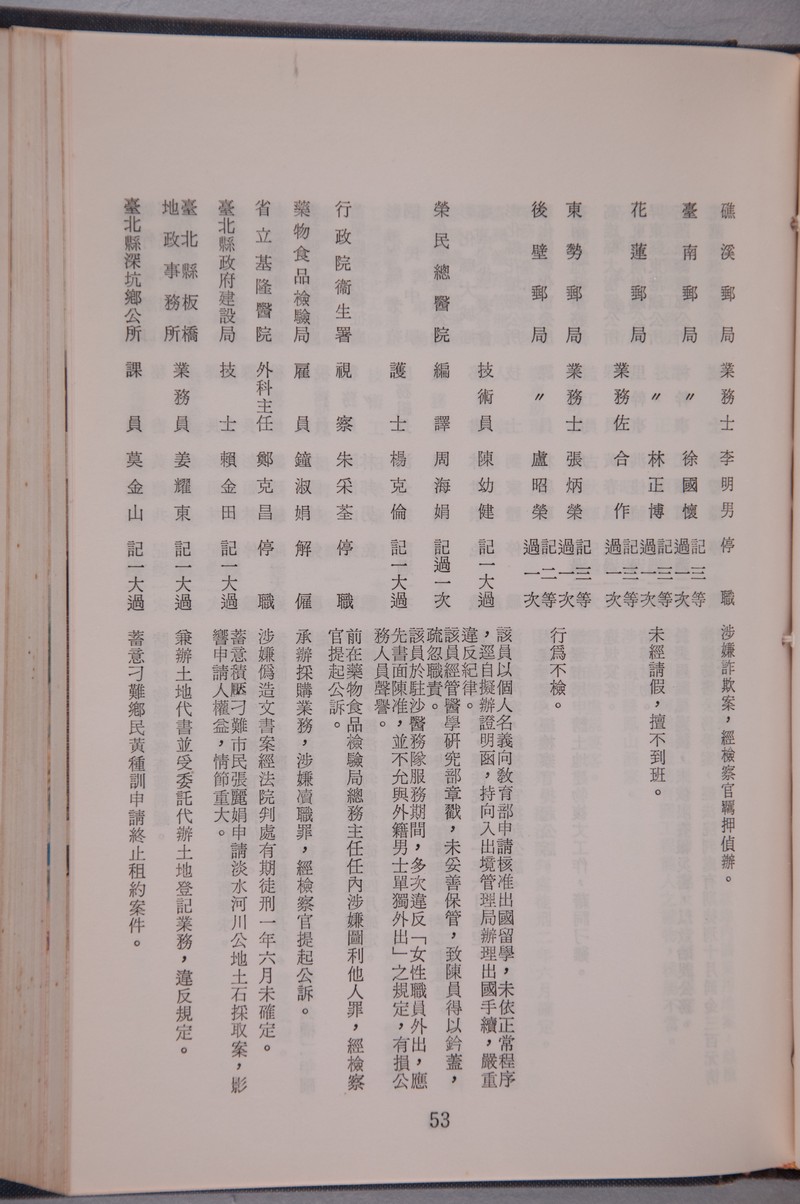 礁溪郵局 業務士 李明男 停職 涉嫌詐欺案，經檢察官羈押偵辦。
臺南郵局 〃 徐國懷 記三等過一次
花蓮郵局 〃 林正博 記三等過一次 未經請假，擅不到班。
業務佐 合作 記三等過一次
東勢郵局 業務士 張炳榮 記三等過一次
後壁郵局 〃 盧昭榮 記二等過一次 行爲不檢。
榮民總醫院 技術員 陳幼健 記一大過 該員以個人名義向敎育部申請核准出國留學，未依正常程序
，逕自擬辦證明函，持向入出境管理局辦理出國手續，嚴重
違反紀律。
編譯 周海娟 記過一次 該員經管醫學研究部章戳，未妥善保管，致陳員得以鈐蓋，
疏忽職責。
護士 楊克倫 記一大過 該員於駐沙醫務隊服務期間，多次違反「女性職員外出，應
先書面陳准，並不允與外籍男士單獨外出」之規定，有損公
務人員聲譽。
行政院衞生署 視察 朱采荃 停職 前在藥物食品檢驗局總務主任任內涉嫌圖利他人罪，經檢察
官提起公訴。
藥物食品檢驗局 雇員 鐘淑娟 解僱 承辦採購業務，涉嫌瀆職罪，經檢察官提起公訴。
省立基隆醫院 外科主任 鄭克昌 停職 涉嫌僞造文書案經法院判處有期徒刑一年六月未確定。
臺北縣政府建設局 技士 賴金田 記一大過 蓄意積壓刁難市民張麗娟申請淡水河川公地土石採取案，影
響申請人權益，情節重大。
臺北縣板橋地政事務所 業務員 姜耀東 記一大過 兼辦土地代書並受委託代辦土地登記業務，違反規定。
臺北縣深坑鄉公所 課員 莫金山 記一大過 蓄意刁難鄉民黃種訓申請終止租約案件。
53